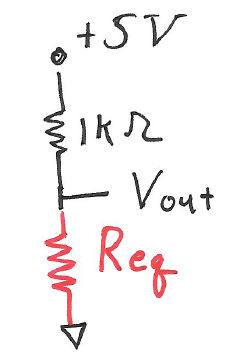 +5V
1kΩ
Vout
Req